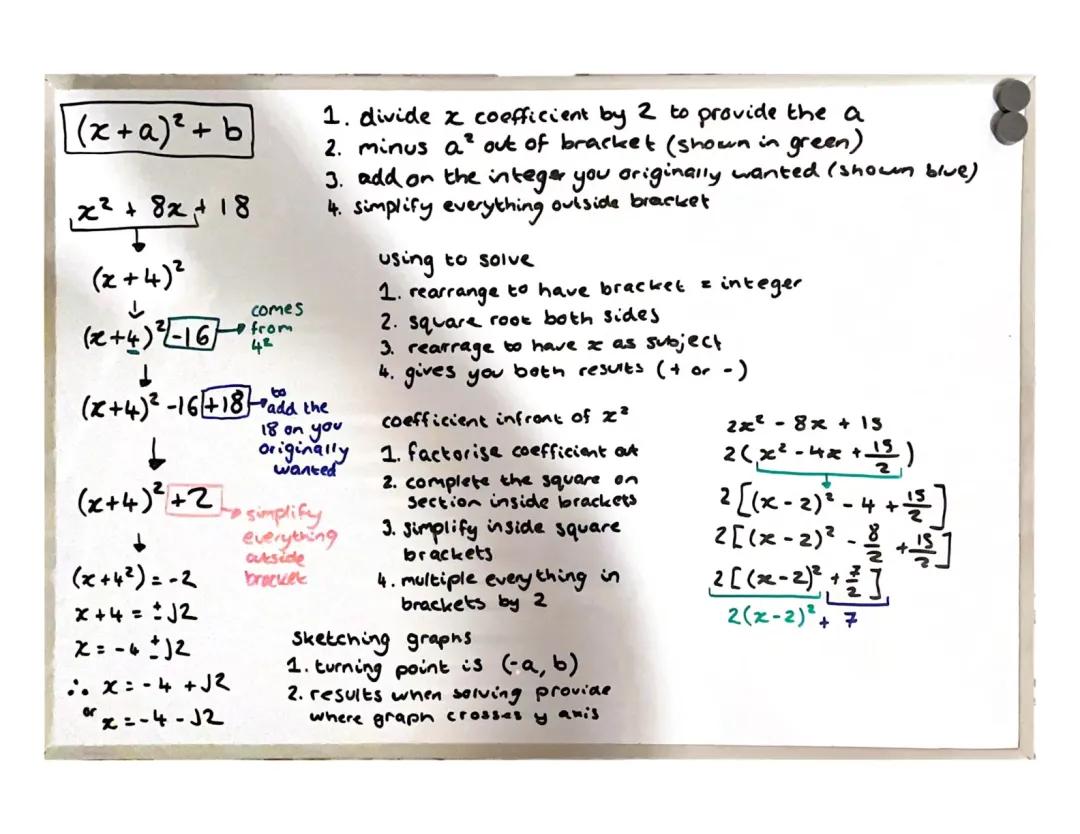 (x+a)² + b
x² + 8x + 18
(x+4)²
(x+4)² -16
comes
from
4²
(x+4)² -16 +18
to
add the
18 on you
originally
wanted
(x+4)² +2
simplify
everything
outside
bracket
(x+4²) = -2
x+4 = ±√2
x = -4 ±√2
∴ x = -4 +√2
or x = -4 -√2
1. divide x coefficient by 2 to provide the a
2. minus a² out of bracket (shown in green)
3. add on the integer you originally wanted (shown blue)
4. simplify everything outside bracket
using to solve
1. rearrange to have bracket = integer
2. square root both sides
3. rearrage to have x as subject
4. gives you both results (+ or -)
coefficient infront of x²
1. factorise coefficient out
2. complete the square on
section inside brackets
3. simplify inside square
brackets
4. multiple everything in
brackets by 2
Sketching graphs
1. turning point is (-a, b)
2. results when solving provide
where graph crosses y axis
2x² - 8x + 15
2(x² - 4x + 15/2)
2[(x-2)² - 4 + 15/2]
2[(x-2)² - 8/2 + 15/2]
2[(x-2)² + 7/2]
2(x-2)² + 7